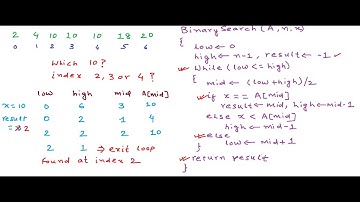 2 4 10 10 10 18 20
0 1 2 3 4 5 6
Which 10?
index 2, 3 or 4?
low high mid A[mid]
x=10 0 6 3 10
result 0 2 1 4
=2 2 2 2 10
2 1 ⇒ exit loop
found at index 2
BinarySearch(A,n,x)
{
low ← 0
high ← n-1, result ← -1
While(low <= high)
{
mid ← (low+high)/2
if x == A[mid]
result ← mid, high ← mid-1
else x < A[mid]
high ← mid-1
else
low ← mid+1
}
return result
}